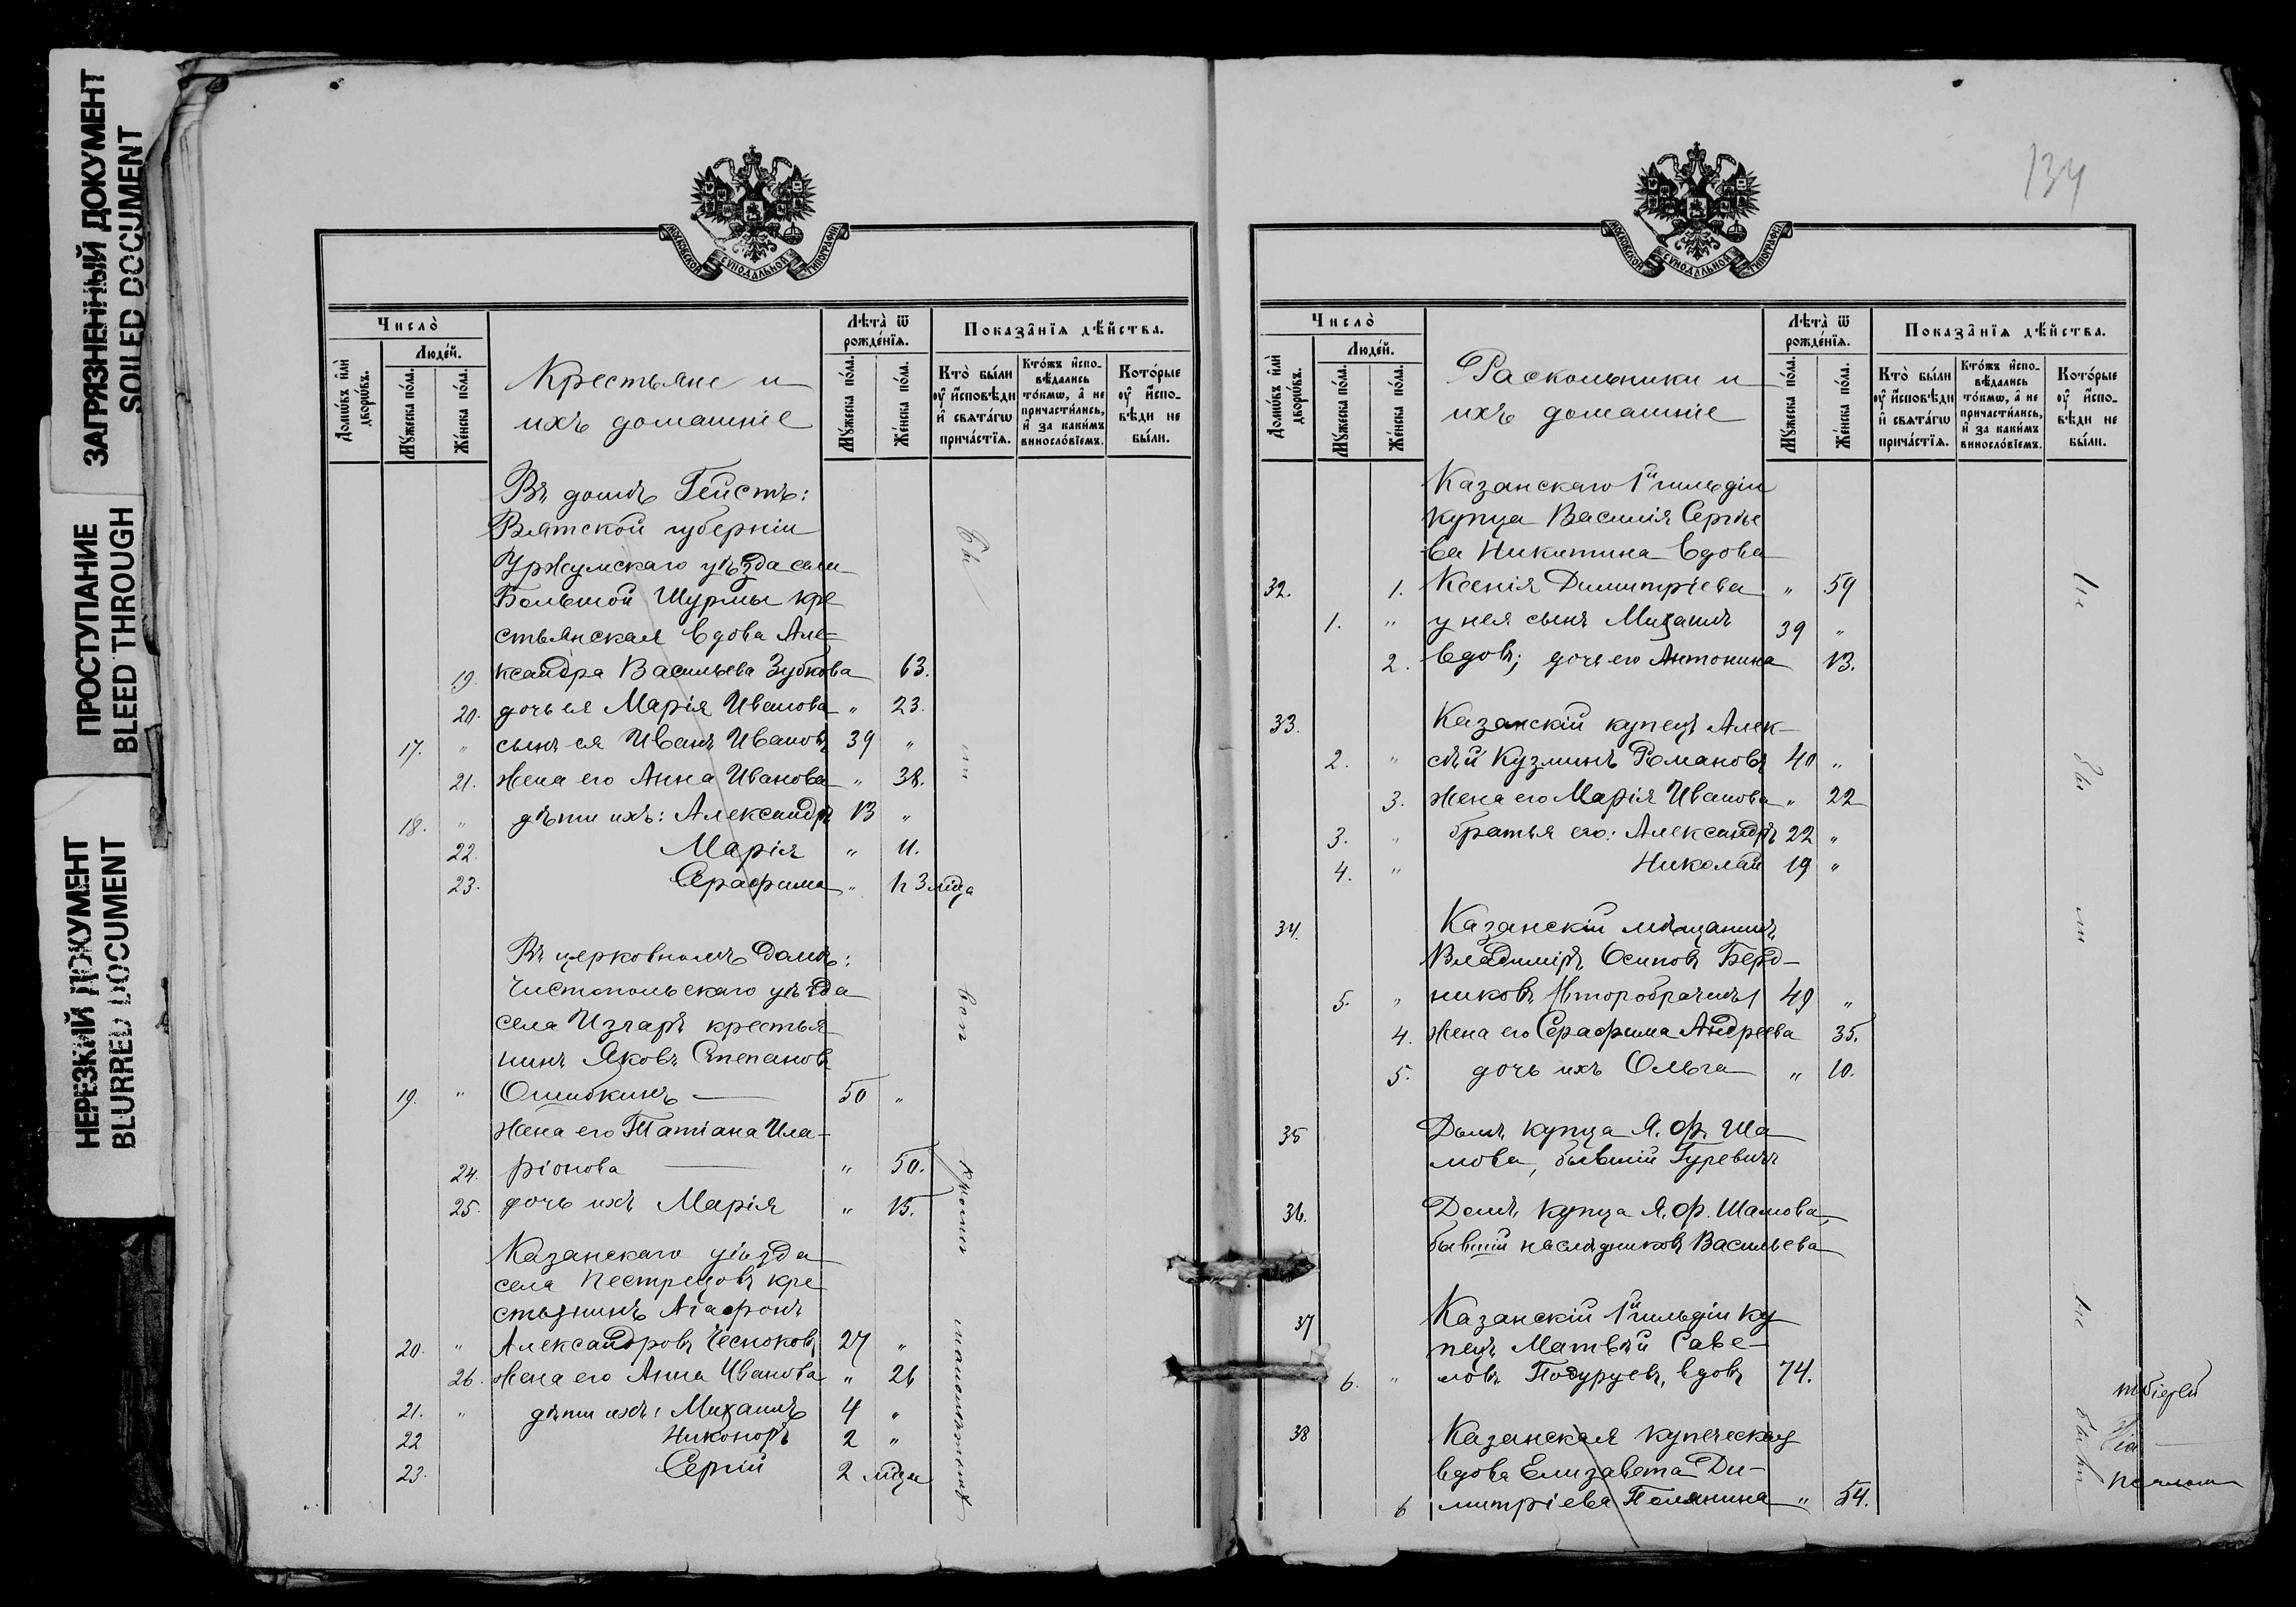 ЗАГРЯЗНЕННЫЙ ДОКУМЕНТ
SOILED DOCUMENT
ПРОСТУПАНИЕ
BLEED THROUGH
НЕРЕЗКИЙ ДОКУМЕНТ
BLURRED DOCUMENT
МОСКОВСКОЙ СѴНОДАЛЬНОЙ ТИПОГРАФІИ
Число̀
Люде́й.
Домѡ́въ и҆лѝ дворѡ́въ.
Мꙋ́жеска по́ла.
Же́нска по́ла.
Крестьяне и
ихъ домашніе
Лѣта̀ ѿ рожде́нїѧ.
Мꙋ́жеска по́ла.
Же́нска по́ла.
Показа̑нїѧ дѣ́йства.
Кто̀ бы́ли ᲂу҆ и҆сповѣ́ди и҆ свѧта́гѡ прича́стїѧ.
Кто́жъ и҆сповѣ́дались то́кмѡ, а҆ не причасти́лись, и҆ за каки́мъ винослѡ́вїемъ.
Кото́рые ᲂу҆ и҆сповѣ́ди не бы́ли.
Въ домѣ Гейстъ:
Вятской губерніи
Уржумскаго уѣзда села
Большой Шурмы кре
стьянская вдова Але-
19. ксандра Васильева Зубкова 63.
20. дочь ея Марія Иванова " 23.
17. " сынъ ея Иванъ Ивановъ 39 "
21. жена его Анна Иванова " 38.
18. " дѣти ихъ: Александръ 13 "
22. Марія " 11.
23. Серафима " 1 и 3 мѣца
Въ церковномъ домѣ:
Чистопольскаго уѣзда
села Изгаръ крестья
нинъ Яковъ Степановъ
19. " Ошибкинъ — 50 "
жена его Татіана Ила-
24. ріонова — " 50.
25. дочь ихъ Марія " 15.
Казанскаго уѣзда
села Пестрецовъ кре
стьянинъ Агафонъ
20. " Александровъ Чесноковъ 27 "
26. жена его Анна Иванова " 26
21. " дѣти ихъ: Михаилъ 4 "
22 Никоноръ 2 "
23. Сергій 2 мѣца
Бы
ли
вси
кромѣ
малолѣтнихъ
134
МОСКОВСКОЙ СѴНОДАЛЬНОЙ ТИПОГРАФІИ
Число̀
Люде́й.
Домѡ́въ и҆лѝ дворѡ́въ.
Мꙋ́жеска по́ла.
Же́нска по́ла.
Раскольники и
ихъ домашніе
Лѣта̀ ѿ рожде́нїѧ.
Мꙋ́жеска по́ла.
Же́нска по́ла.
Показа̑нїѧ дѣ́йства.
Кто̀ бы́ли ᲂу҆ и҆сповѣ́ди и҆ свѧта́гѡ прича́стїѧ.
Кто́жъ и҆сповѣ́дались то́кмѡ, а҆ не причасти́лись, и҆ за каки́мъ винослѡ́вїемъ.
Кото́рые ᲂу҆ и҆сповѣ́ди не бы́ли.
Казанскаго 1й гильдіи
купца Василія Сергѣе
ва Никитина вдова
32. 1. Ксенія Димитріева " 59
1. " у нея сынъ Михаилъ 39 "
2. вдовъ; дочь его Антонина 13.
33. Казанскій купецъ Алек-
2. " сѣй Кузминъ Романовъ 40 "
3. жена его Марія Иванова " 22
3. " братья его: Александръ 22 "
4. " Николай 19 "
34. Казанскій мѣщанинъ
Владиміръ Осиповъ Берд-
5. " никовъ (второбрачный) 49 "
4. жена его Серафима Андреева 35.
5. дочь ихъ Ольга " 10.
35 Домъ купца Я. Ф. Ша
мова, бывшій Гуревичъ
36. Домъ купца Я. Ф. Шамова,
бывшій наслѣдниковъ Васильева
37 Казанскій 1й гильдіи ку
пецъ Матвѣй Саве-
6. " ловъ Подуруевъ, вдовъ 74.
38 Казанская купеческая
вдова Елизавета Ди-
6 митріева Полянина " 54.
Не
бы
ли